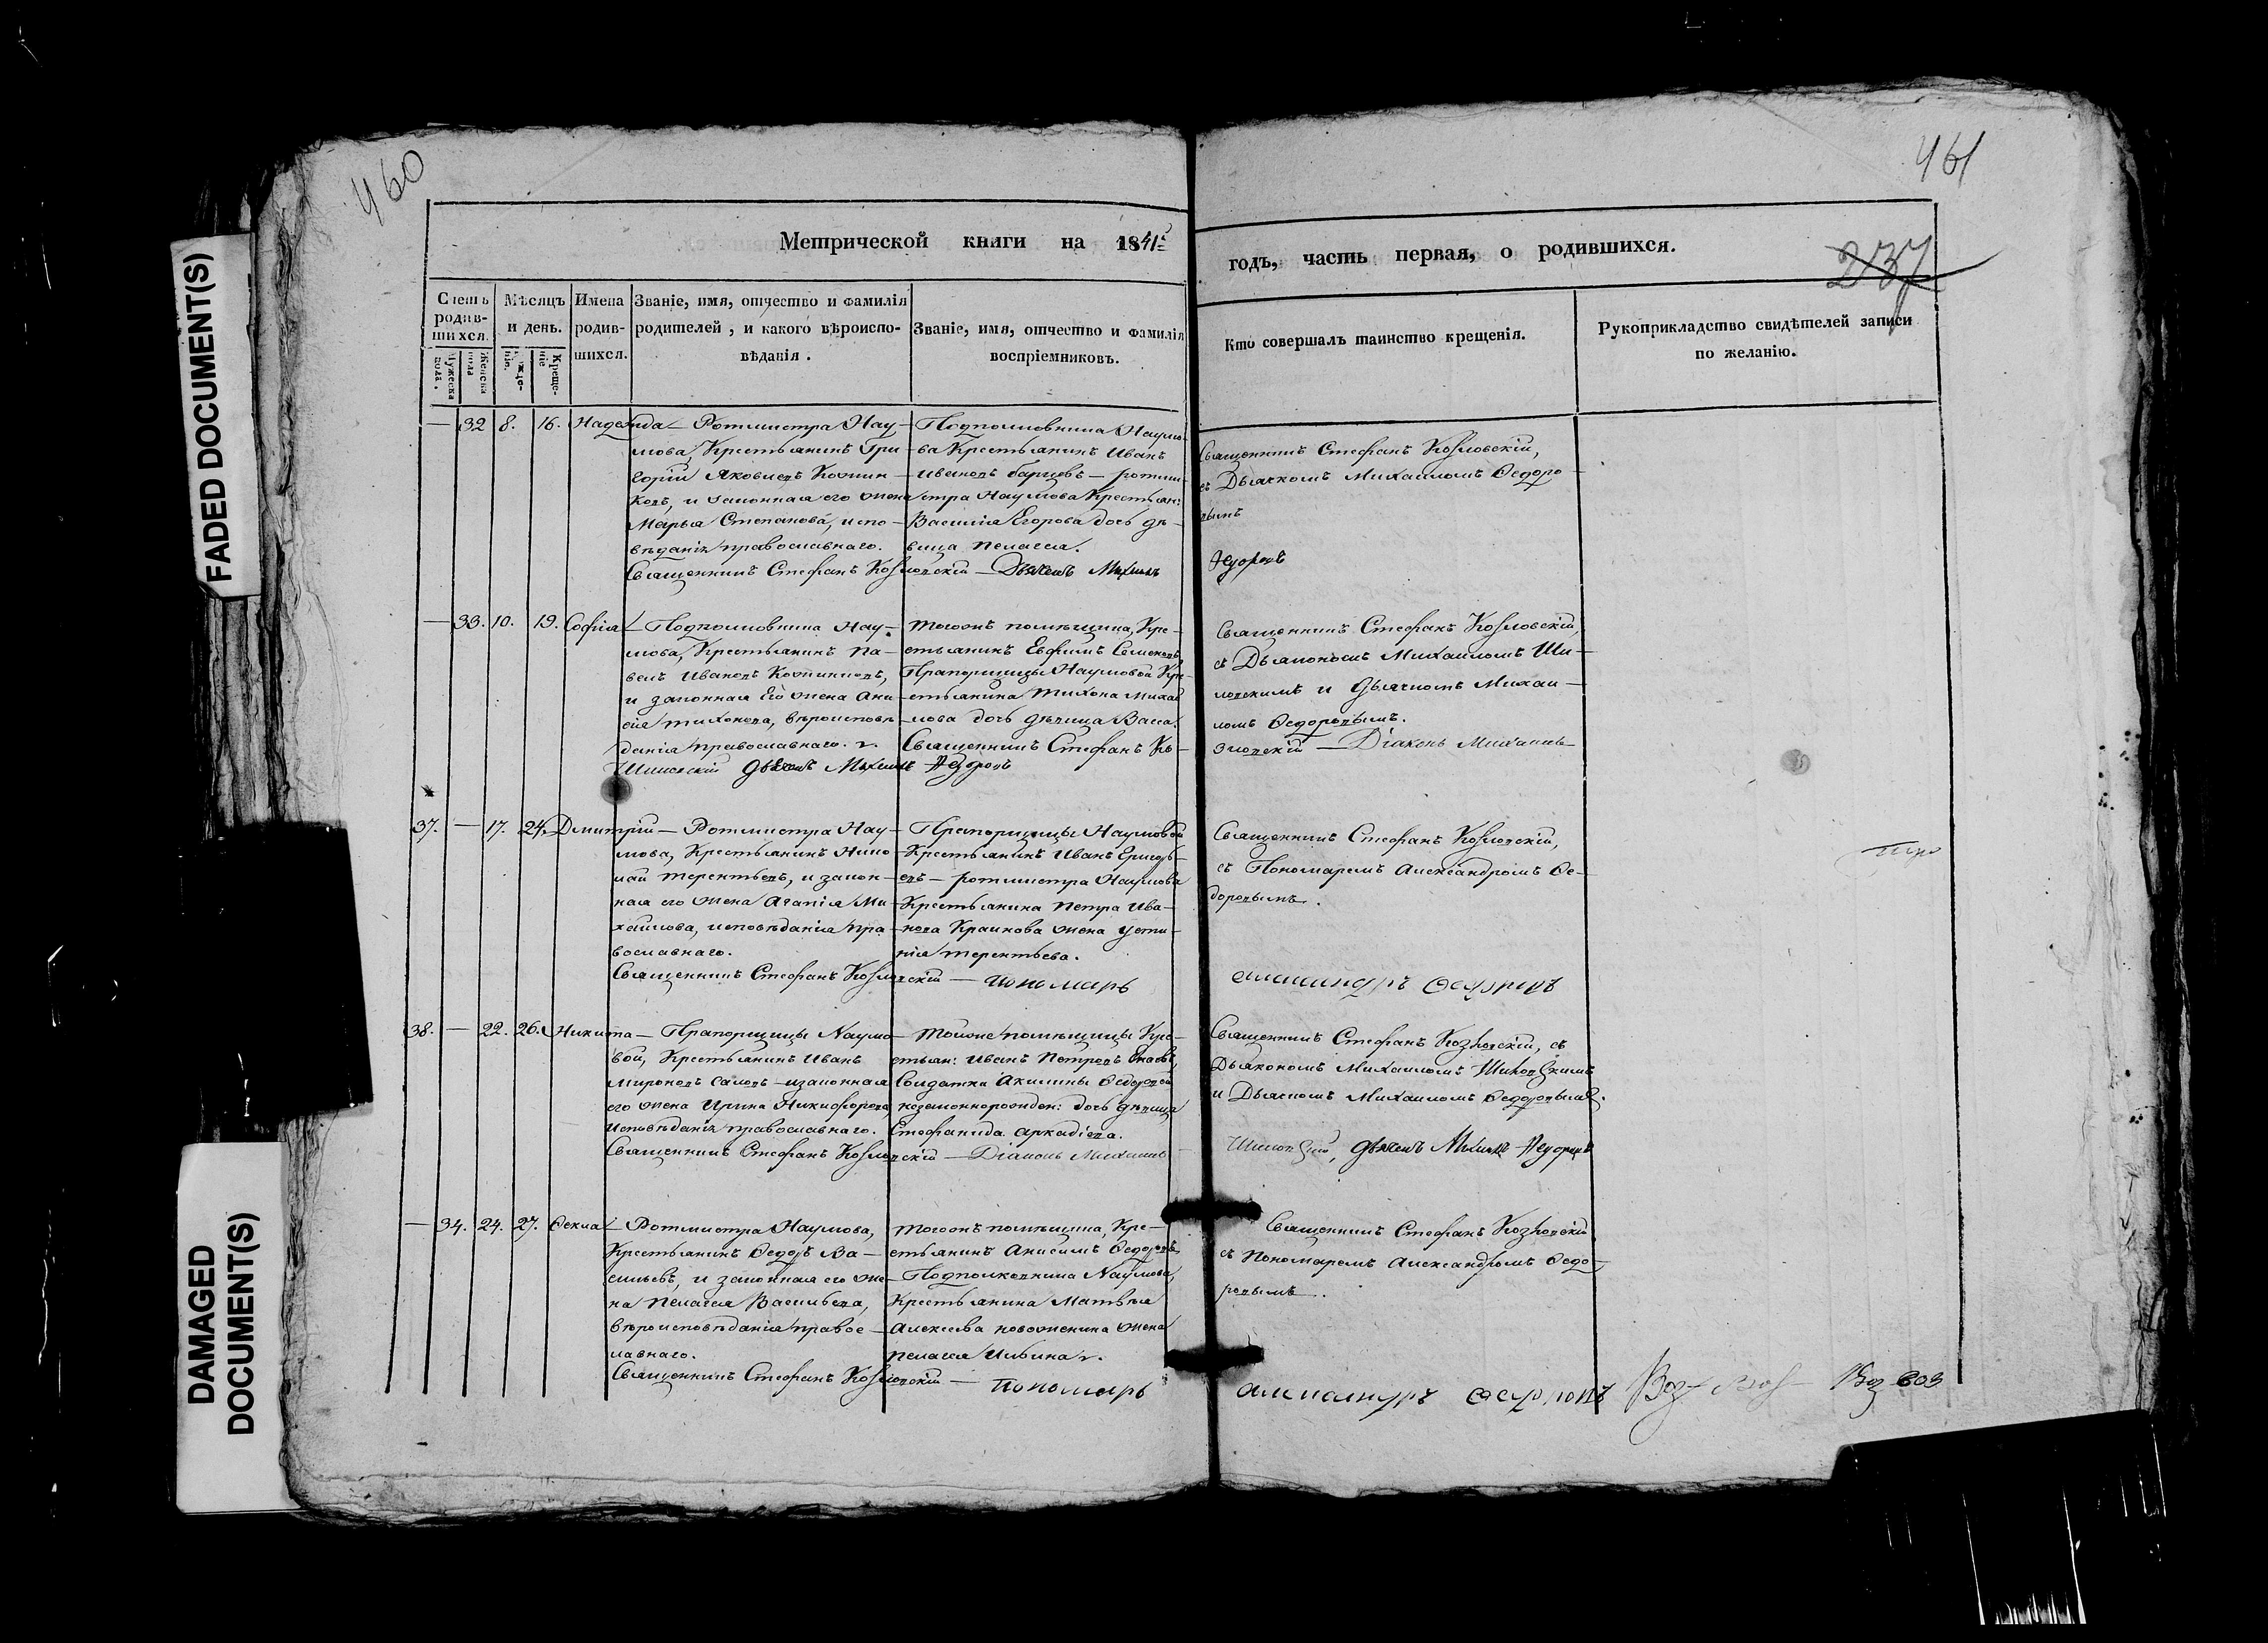 FADED DOCUMENT(S)
DAMAGED
DOCUMENT(S)
460
461
Метрической книги на 1841
годъ, часть первая, о родившихся.
237
Счетъ
родив-
шихся.
Мужеска
пола.
Женска
пола
Мѣсяцъ
и день.
Креще-
нія
Имена
родив-
шихся.
Званіе, имя, отчество и фамилія
родителей, и какого вѣроиспо-
вѣданія.
Званіе, имя, отчество и фамилія
воспріемниковъ.
Кто совершалъ таинство крещенія.
Рукоприкладство свидѣтелей записи
по желанію.
— 32 8. 16. Надежда — Ротмистра Нау-
мова, Крестьянинъ Гри-
горій Яковлевъ
и законная его жена
Марья Степанова, испо-
вѣданія православнаго.
Священникъ Стефанъ Козловскій — Дьячекъ Михаилъ
Подполковника Наумо-
ва Крестьянинъ Иванъ
Ивановъ — ротми-
стра Наумова Крестьян:
Василія Егорова дочь дѣ-
вица Пелагея.
Священникъ Стефанъ Козловскій,
съ Дьячкомъ Михаиломъ Ѳедоро-
вымъ
Ѳедоровъ
— 33. 10. 19. Софія — Подполковника Нау-
мова, Крестьянинъ Па-
велъ Ивановъ
и законная его жена Ана-
сія Тихонова, вѣроисповѣ-
данія православнаго.
Шиловскій дьячекъ Михаилъ Ѳедоровъ
Тогожъ помѣщика, Кре-
стьянинъ Евфимъ Семеновъ
Прапорщицы Наумовой Кре-
стьянина Тихона Михаи-
лова дочь дѣвица Васса.
Священникъ Стефанъ Ко-
Священникъ Стефанъ Козловскій,
съ Дьякономъ Михаиломъ Ши-
ловскимъ и Дьячкомъ Михаи-
ломъ Ѳедоровымъ.
зловскій — Діаконъ Михаилъ
37. — 17. 24. Дмитрій — Ротмистра Нау-
мова, Крестьянинъ Нико-
лай Терентьевъ, и закон-
ная его жена Агапія Ми-
хайлова, исповѣданія пра-
вославнаго.
Священникъ Стефанъ Козловскій — Пономарь
Прапорщицы Наумовой
Крестьянинъ Иванъ
ротмистра Наумова
Крестьянина Петра Ива-
нова жена Усти-
нія Терентьева.
Священникъ Стефанъ Козловскій,
съ Пономаремъ Александромъ Ѳе-
доровымъ.
Александръ Ѳедоровъ
38. — 22. 26. Никита — Прапорщицы Наумо-
вой, Крестьянинъ Иванъ
Мироновъ — и законная
его жена Ирина Никифорова
исповѣданія православнаго.
Священникъ Стефанъ Козловскій — Діаконъ Михаилъ
Тойже помѣщицы Кре-
стьян: Иванъ Петровъ
Солдатки Акилины Ѳедоровой
незаконнорожден: дочь дѣвица
Стефанида Аркадіева.
Священникъ Стефанъ Козловскій, съ
Дьякономъ Михаиломъ Шиловскимъ
и Дьячкомъ Михаиломъ Ѳедоровымъ.
Шиловскій, дьячекъ Михаилъ Ѳедоровъ
— 34. 24. 27. Ѳекла — Ротмистра Наумова,
Крестьянинъ Ѳедоръ Ва-
сильевъ, и законная его же-
на Пелагея Васильева,
вѣроисповѣданія правос-
лавнаго.
Священникъ Стефанъ Козловскій — Пономарь
Тогожъ помѣщика, Кре-
стьянинъ Анисимъ Ѳедоровъ
Подполковника Наумова,
Крестьянина Матвѣя
Алексѣева жена
Пелагея Ильина.
Священникъ Стефанъ Козловскій
съ Пономаремъ Александромъ Ѳедо-
ровымъ.
Александръ Ѳедоровъ